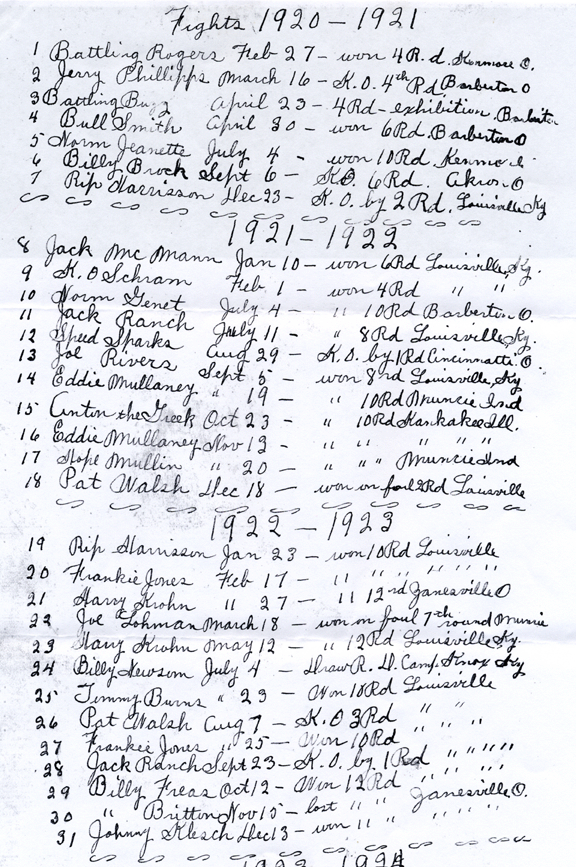 Fights 1920 – 1921
1 Battling Rogers Feb 27 – won 4 R.d. Kenmore O.
2 Jerry Phillipps March 16 – K.O. 4th Rd Barberton O
3 Battling Buzz April 23 – 4Rd – exhibition. Barberton
4 Bull Smith April 30 – won 6Rd. Barberton O
5 Norm Jeanette July 4 – won 10Rd. Kenmore
6 Billy Brock Sept 6 – K.O. 6Rd. Akron. O
7 Rip Harrisson Dec 23 – K.O. by 2 Rd. Louisville Ky
1921 – 1922
8 Jack Mc Mann Jan 10 – won 6Rd Louisville, Ky.
9 K.O Schram Feb 1 – won 4Rd " "
10 Norm Genet July 4 – " 10Rd Barberton O.
11 Jack Ranch July 11 – " 8Rd Louisville Ky.
12 Speed Sparks Aug 29 – K.O. by 1Rd Cincinnatti O.
13 Joe Rivers Sept 5 – won 8rd Louisville, Ky
14 Eddie Mullaney " 19 – " 10Rd Muncie Ind
15 Anton the Greek Oct 23 – " 10Rd Kankakee Ill.
16 Eddie Mullaney Nov 13 – " " " " "
17 Hope Mullin " 20 – " " " Muncie Ind
18 Pat Walsh Dec 18 – won on foul 2Rd Louisville
1922 – 1923
19 Rip Harrisson Jan 23 – won 10Rd Louisville
20 Frankie Jones Feb 17 – " " " " " "
21 Harry Krohn " 27 – " 12rd Janesville O
22 Joe Lohman March 18 – won on foul 7th round Muncie
23 Harry Krohn May 12 – " 12Rd Louisville, Ky.
24 Billy Newsom July 4 – Draw R. D. Camp Knox Ky
25 Timmy Burns " 23 – Won 10Rd Louisville
26 Pat Walsh Aug 7 – K.O 3Rd " "
27 Frankie Jones " 25 – Won 10Rd " "
28 Jack Ranch Sept 23 – K.O. by 1Rd " " " "
29 Billy Freas Oct 12 – Won 12Rd " "
30 " Britton Nov 15 – lost " " Janesville O.
31 Johnny Klesch Dec 13 – won " " " " " "
1923 1924